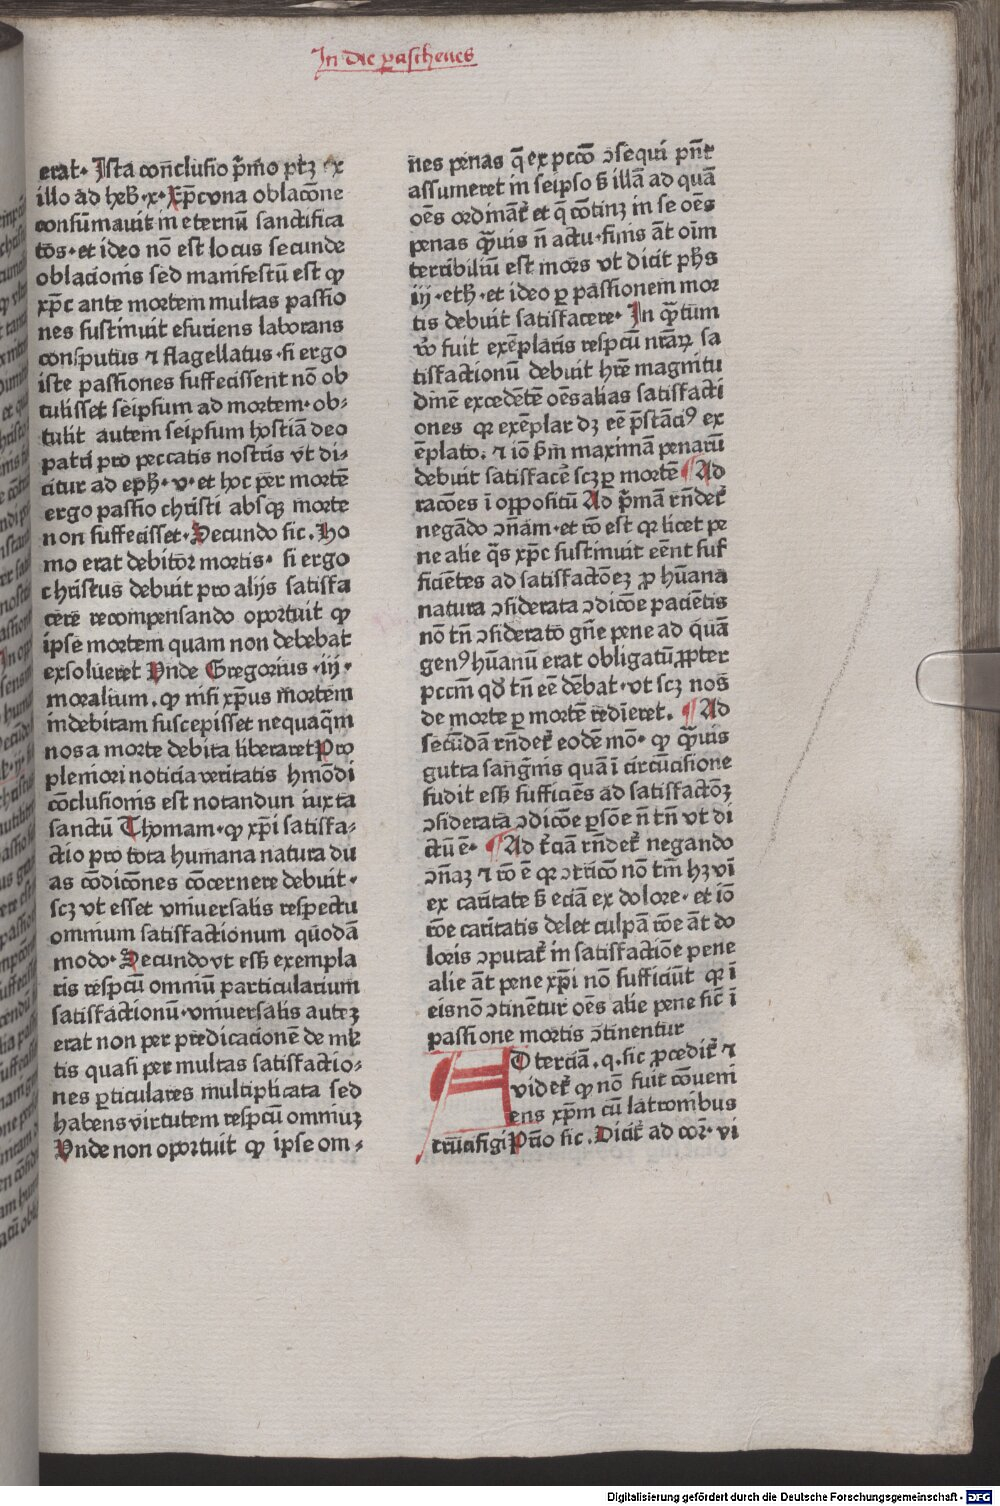 In die parasceues
erat· Ista con̄clusio p̄rimo ptꝫ ex
illo ad heb̄·x·xp̄c vna oblacōne
consūmauit in eternū sanctifica
tos·et ideo nō est locus secunde
oblacionis sed manifestū est ꝙ
xp̄c ante mortem multas passio
nes sustinuit esuriens laborans
consputus ⁊ flagellatus·si ergo
iste passiones suffecissent nō ob
tulisset seipsum ad mortem·ob⸗
tulit autem seipsum hostiā deo
patri pro peccatis nostris vt di⸗
citur ad eph̄·v·et hoc per mortē
ergo passio christi absqꝫ morte
non suffecisset·Secundo sic.Ho
mo erat debitor mortis· si ergo
christus debuit pro alijs satisfa
cere recompensando oportuit ꝙ
ipse mortem quam non debebat
exsolueret Vnde Gregorius·iij·
moralium.ꝙ nisi xp̄us mortem
indebitam suscepisset nequaq̄m
nos a morte debita liberaret Pro
pleniori noticia veritatis hmōdi
cōclusionis est notandun iuxta
sanctū Thomam·ꝙ xp̄i satisfa⸗
ctio pro tota humana natura du
as cōdicōnes cōcernere debuit·
scꝫ vt esset vniuersalis respectu
omnium satisfactionum quodā
modo·Secundo vt esꝫ exempla
ris respcū omniū particularium
satisfactionū·vniuersalis auteꝫ
erat non per predicacionē de ml
tis quasi per multas satisfactio⸗
nes ꝑticulares multiplicata sed
habens virtutem respcū omniuꝫ
Vnde non oportuit ꝙ ipse om⸗
nes penas q̄ ex pccō ɔsequi pn̄t
assumeret in seipso ꝫ illā ad quā
oēs ordinātr̄ et q̄ cōtinꝫ in se oēs
penas q̄uis n̄ actu·finis āt oīm
terribiliū est mors vt dicit ph̄s
iij·eth̄·et ideo ꝑ passionem mor
tis debuit satisfacere· In q̄tum
v̄o fuit exēplaris respcū nrāꝝ sa
tisfactionū debuit hr̄e magnitu
dinē excedētē oēs alias satisfacti
ones qꝛ exēplar dꝫ eē p̄stāciꝰ ex
ēplato. ⁊ iō ꝑm maximam penarū
debuit satisfacē scꝫ ꝑ mortē ¶Ad
racōes ī oppositū Ad p̄mā rn̄det̄
negādo ɔn̄am·et rō est qꝛ licet pe
ne alie q̄s xp̄c sustinuit eēnt suf
ficiētes ad satisfactōeꝫ ꝓ hūana
natura ɔsiderata ɔdicōe pacīetis
nō tn̄ ɔsiderato gn̄e pene ad quā
genꝰ hūanū erat obligatū ꝓpter
pccm̄ qd̄ tn̄ eē dēbat·vt scꝫ nos
de morte ꝑ mortē rediēret. ¶Ad
secūdā rn̄det̄ eodē mō· ꝙ q̄uis
gutta sangīnis quā ī circūcisione
fudit esꝫ sufficiēs ad satisfactōꝫ
ɔsiderata ɔdicōe ꝑsōe n̄ tn̄ vt di
ctū ē· ¶Ad t̄ciā rn̄det̄ negando
ɔn̄aꝫ ⁊ rō ē qꝛ ɔtricō nō tm̄ hꝫ vī
ex caritate ꝫ eciā ex dolore·et iō
rōe caritatis delet culpā rōe āt do
loris ɔputat̄ in satisfactiōe pene
alie āt pene xp̄i nō sufficiūt qꝛ ī
eis nō ɔtinētur oēs alie pene sic̄ ī
passione mortis ɔtinentur
AD terciā.q.sic ꝓcedit̄ ⁊
videt̄ ꝙ nō fuit cōueni
ens xp̄m cū latronibus
crucifigi Pr̄io sic.Dicit̄ ad cor·vi
Digitalisierung gefördert durch die Deutsche Forschungsgemeinschaft - DFG